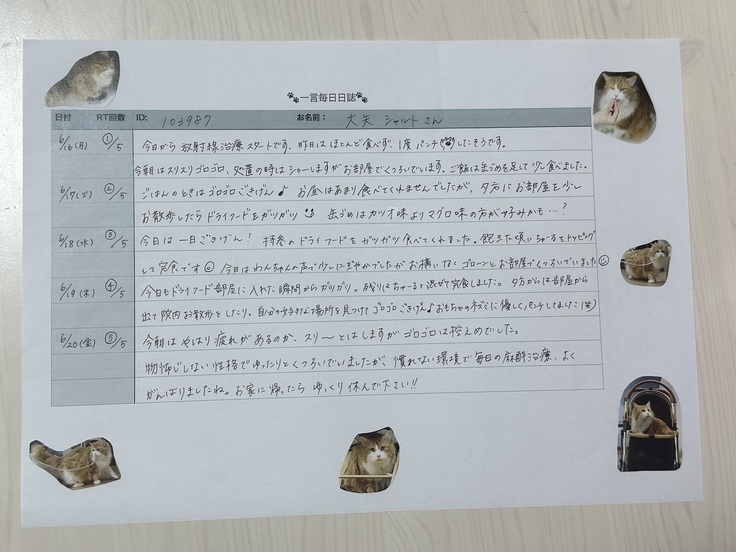 一言毎日日誌
日付 RT回数 ID: 103987 お名前: 大矢 シャルトさん
6/16(月) ①/5 今日から放射線治療スタートです。昨日はほとんど食べず、1度パンチしたそうです。
今朝はスリスリゴロゴロ、処置の時はシャーしますがお部屋でくつろいでいます。ご飯は缶づめを足して少し食べました。
6/17(火) ②/5 ごはんのときはゴロゴロごきげん♪ お昼はあまり食べてくれませんでしたが、夕方にお部屋を少し
お散歩したらドライフードをガツガツ 缶づめはカツオ味よりマグロ味の方が好みかも…?
6/18(水) ③/5 今日は一日ごきげん! 持参のドライフードをガツガツ食べてくれました。飽きた頃にちゅ~るをトッピング
して完食です 今日はわんちゃんの声で少しにぎやかでしたがお構いなくゴローンとお部屋でくつろいでいました
6/19(木) ④/5 今日もドライフード部屋に入れた瞬間からガリガリ。残りはちゅーると混ぜて完食しました。夕方からは部屋から
出て院内お散歩をしたり、自分の好きな場所を見つけてゴロゴロごきげん♪おもちゃのネズミに優しくパンチしてました(笑)
6/20(金) ⑤/5 今朝はやはり疲れがあるのか、スリ~とはしますがゴロゴロは控えめでした。
物怖じしない性格でゆったりとくつろいでいましたが、慣れない環境で毎日の麻酔治療、よく
がんばりましたね。お家に帰ったらゆっくり休んで下さい!!